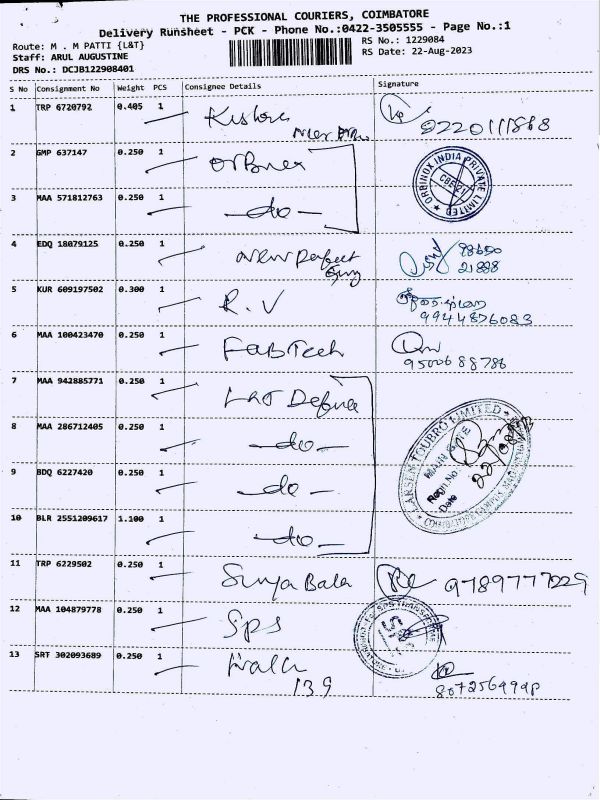 THE PROFESSIONAL COURIERS, COIMBATORE
Delivery Runsheet - PCK - Phone No.:0422-3505555 - Page No.:1
Route: M . M PATTI {L&T}
RS No.: 1229084
Staff: ARUL AUGUSTINE
RS Date: 22-Aug-2023
DRS No.: DCJB122908401
S No Consignment No Weight PCS Consignee Details Signature
1 TRP 6720792 0.405 1 Kishore
2 GMP 637147 0.250 1
ORBINOX INDIA PRIVATE LIMITED
3 MAA 571812763 0.250 1 -do-
4 EDQ 18079125 0.250 1 New Perfect
5 KUR 609197502 0.300 1 R.V
9944876083
6 MAA 100423470 0.250 1 FabTech
9500688786
7 MAA 942885771 0.250 1 L&T Defence
LARSEN & TOUBRO LIMITED
MAIN GATE
Regn No.
Date
8 MAA 286712405 0.250 1 -do-
9 BDQ 6227420 0.250 1 -do-
10 BLR 2551209617 1.100 1 -do-
11 TRP 6229502 0.250 1 Surya Bala 9789777229
12 MAA 104879778 0.250 1 SPS
13 SRT 302093689 0.250 1
139